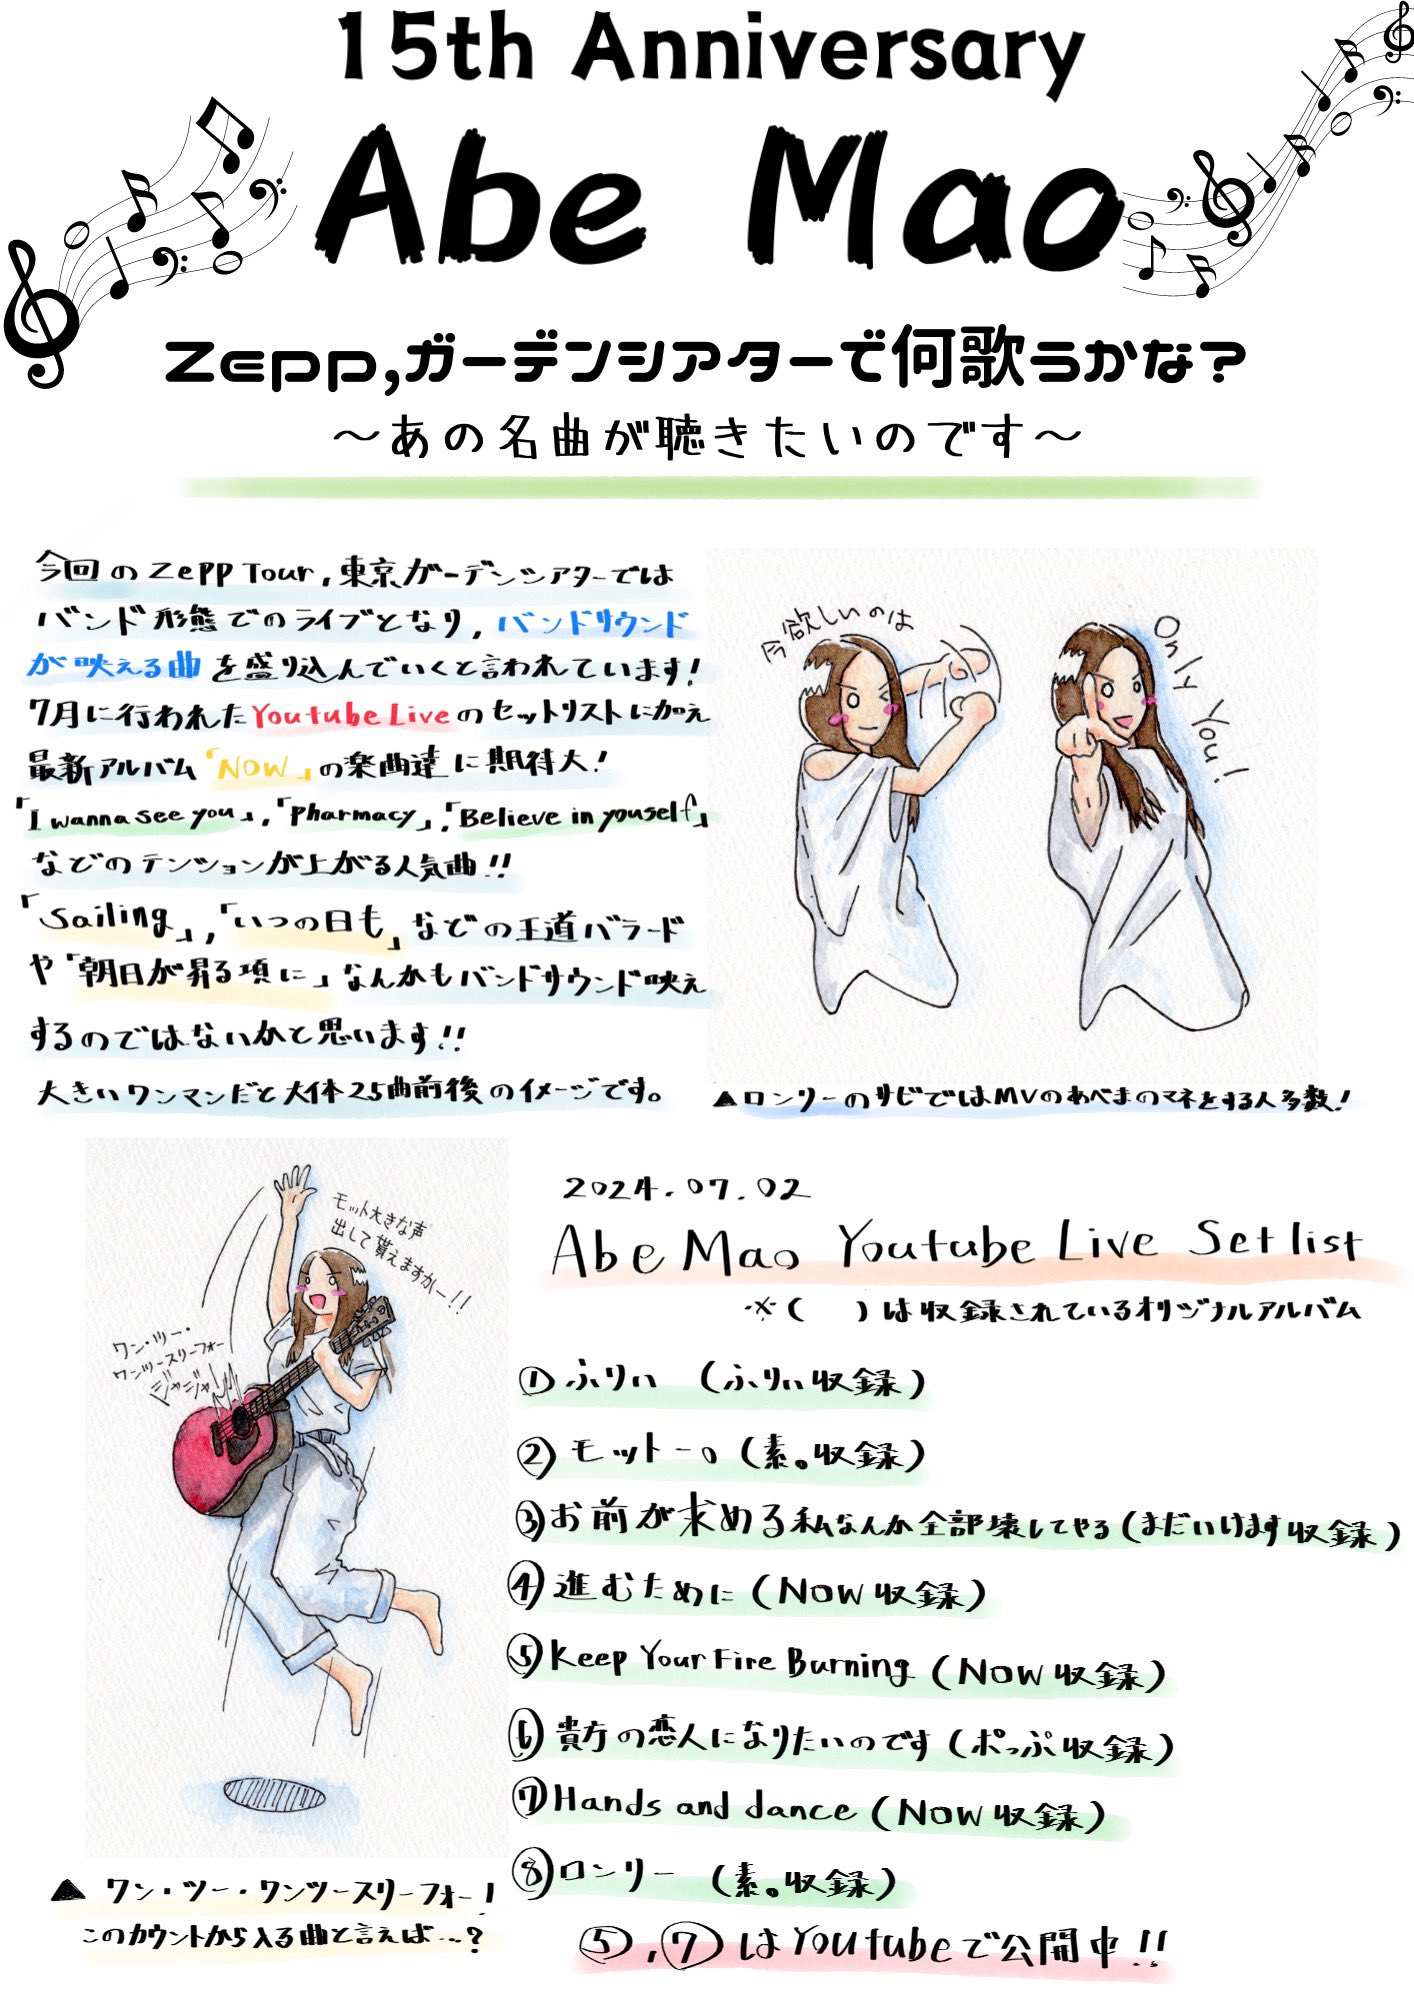 15th Anniversary
Abe Mao
Zepp,ガーデンシアターで何歌うかな?
～あの名曲が聴きたいのです～
今回のZepp Tour,東京ガーデンシアターでは
バンド形態でのライブとなり,バンドサウンド
が映える曲を盛り込んでいくと言われています!
7月に行われたYoutube Liveのセットリストに加え
最新アルバム「NOW」の楽曲達に期待大!
「I wanna see you」,「Pharmacy」,「Believe in youself」
などのテンションが上がる人気曲!!
「Sailing」,「いつの日も」などの王道バラード
や「朝日が昇る項に」なんかもバンドサウンド映え
するのではないかと思います!!
大きいワンマンだと大体25曲前後のイメージです。
今欲しいのは
Only You!
▲ロンリーのサビではMVのあべまのマネをする人多数!
モット大きな声
出して貰えますかー!!
ワン・ツー・
ワンツースリーフォー
ジャジャ
▲ ワン・ツー・ワンツースリーフォー!
このカウントから入る曲と言えば…?
2024.07.02
Abe Mao Youtube Live Setlist
※( )は収録されているオリジナルアルバム
①ふりぃ (ふりぃ収録)
②モットー。(素。収録)
③お前が求める私なんか全部壊してやる(まだいけます収録)
④進むために(NOW収録)
⑤Keep Your Fire Burning (NOW収録)
⑥貴方の恋人になりたいのです(ポっぷ収録)
⑦Hands and dance(NOW収録)
⑧ロンリー (素。収録)
⑤,⑦はYoutubeで公開中!!